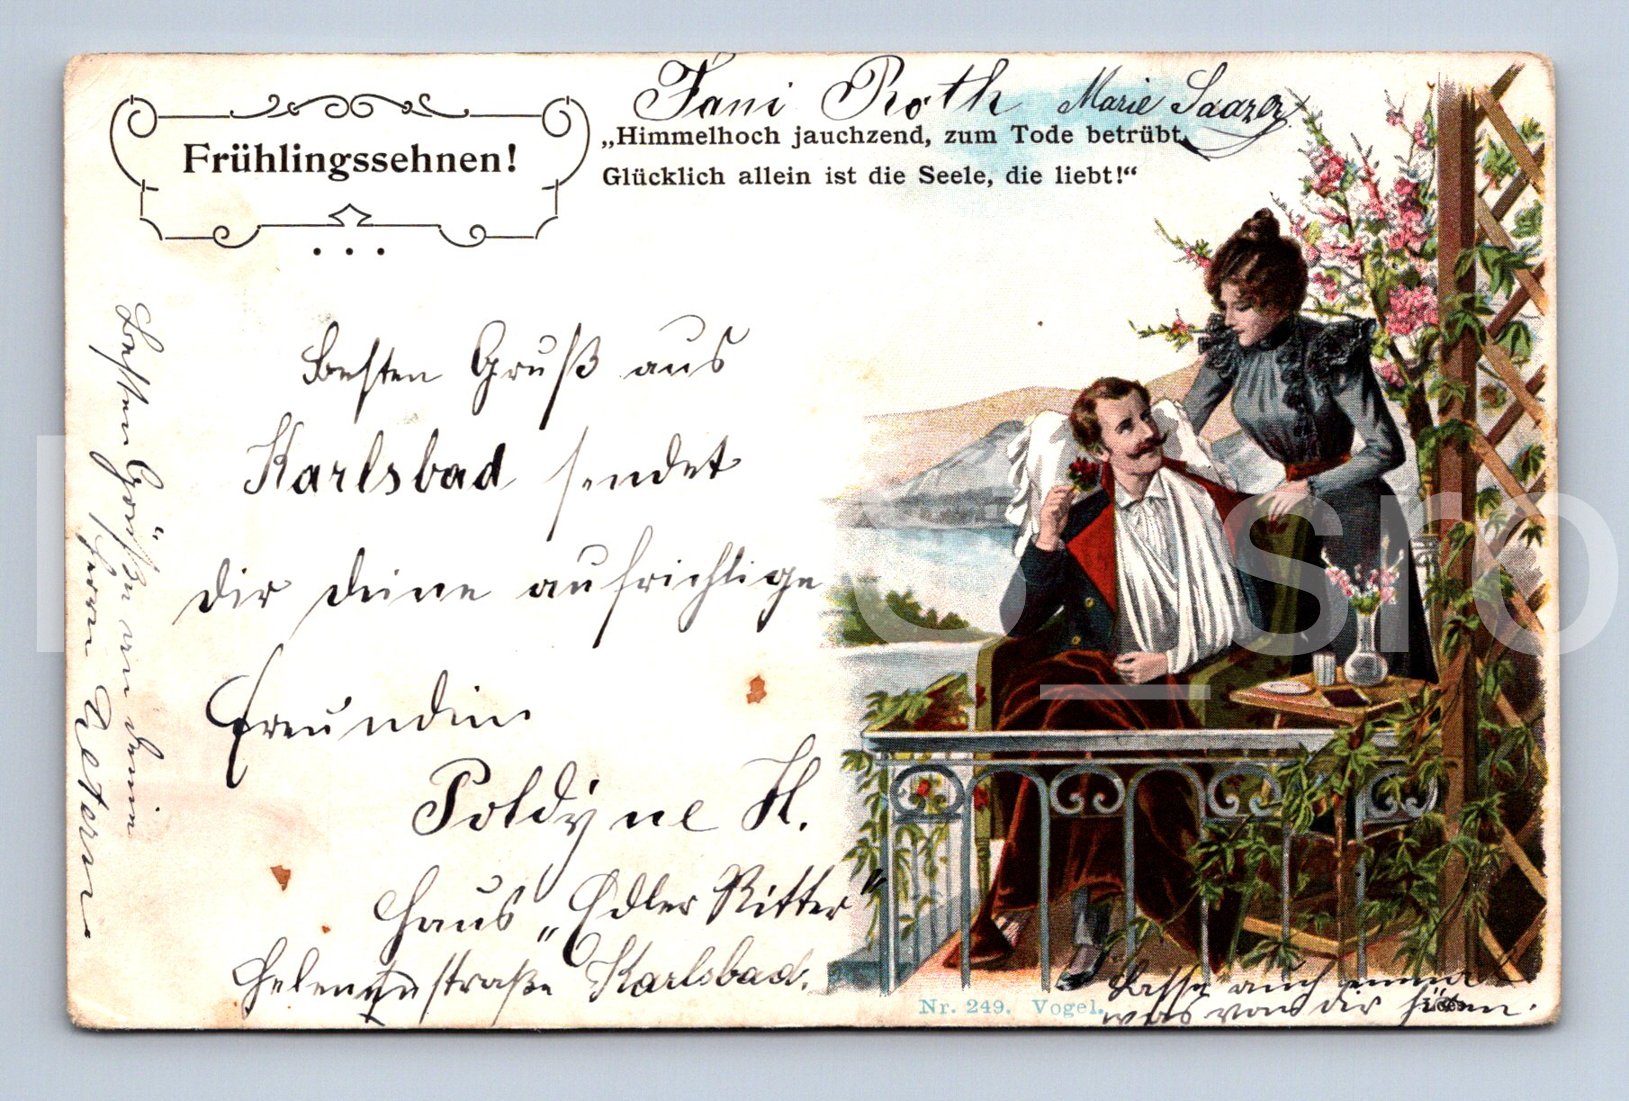 Fani Roth Marie Saazer
Frühlingssehnen!
„Himmelhoch jauchzend, zum Tode betrübt,
Glücklich allein ist die Seele, die liebt!“
Besten Gruß aus
Karlsbad sendet
dir deine aufrichtige
Freundin
Poldyne H.
Haus „Edler Ritter“
Helenenstraße Karlsbad.
Besten Grüße an deine
Lasse auch einmal
was von dir hören.
Nr. 249. Vogel.
_sro